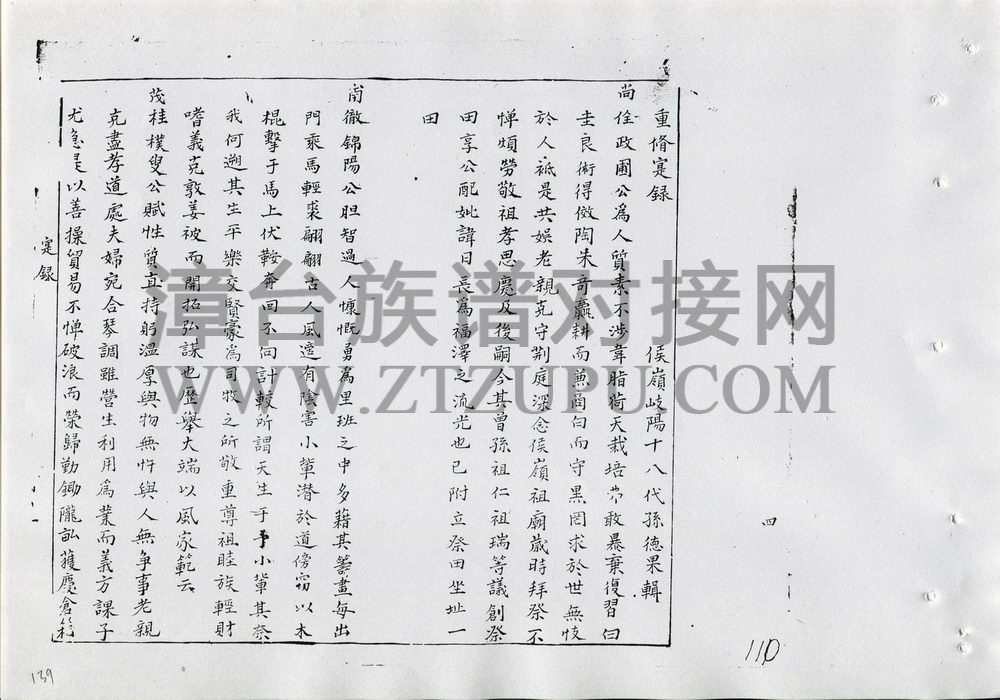 重脩寔録
侯嶺岐陽十八代孫德果輯
尚佺政圃公為人質素不涉韋脂荷天栽培常敢暴棄復習白
圭良術得傚陶朱奇贏耕而兼商白而守黑罔求於世無忮
於人祗是共娛老親克守荆庭深念侯嶺祖廟歲時拜祭不
憚煩勞敬祖孝思慶及後嗣今其曾孫祖仁祖瑞等議創祭
田享公配妣諱日長為福澤之流光也已附立祭田坐址一
田
甫徹錦陽公胆智過人慷慨勇為里班之中多藉其籌畫每出
門乘馬輕裘翩翩古人風遙有陰害小輩潜於道傍窃以木
棍擊于馬上伏鞍奔回不問計較所謂天生于予小輩其奈
我何遡其生平樂交賢豪為司牧之所敬重尊祖睦族輕財
嗜義克敦姜被而開拓弘謀也歷舉大端以風家範云
茂桂樸叟公賦性質直持躬溫厚與物無忤與人無争事老親
克盡孝道處夫婦宛合琴調雖營生利用為業而義方課子
尤急是以善操貿易不憚破浪而榮歸勤鋤隴畝獲慶倉箱
寔録
四
110
139
漳台族谱对接网
WWW.ZTZUPU.COM